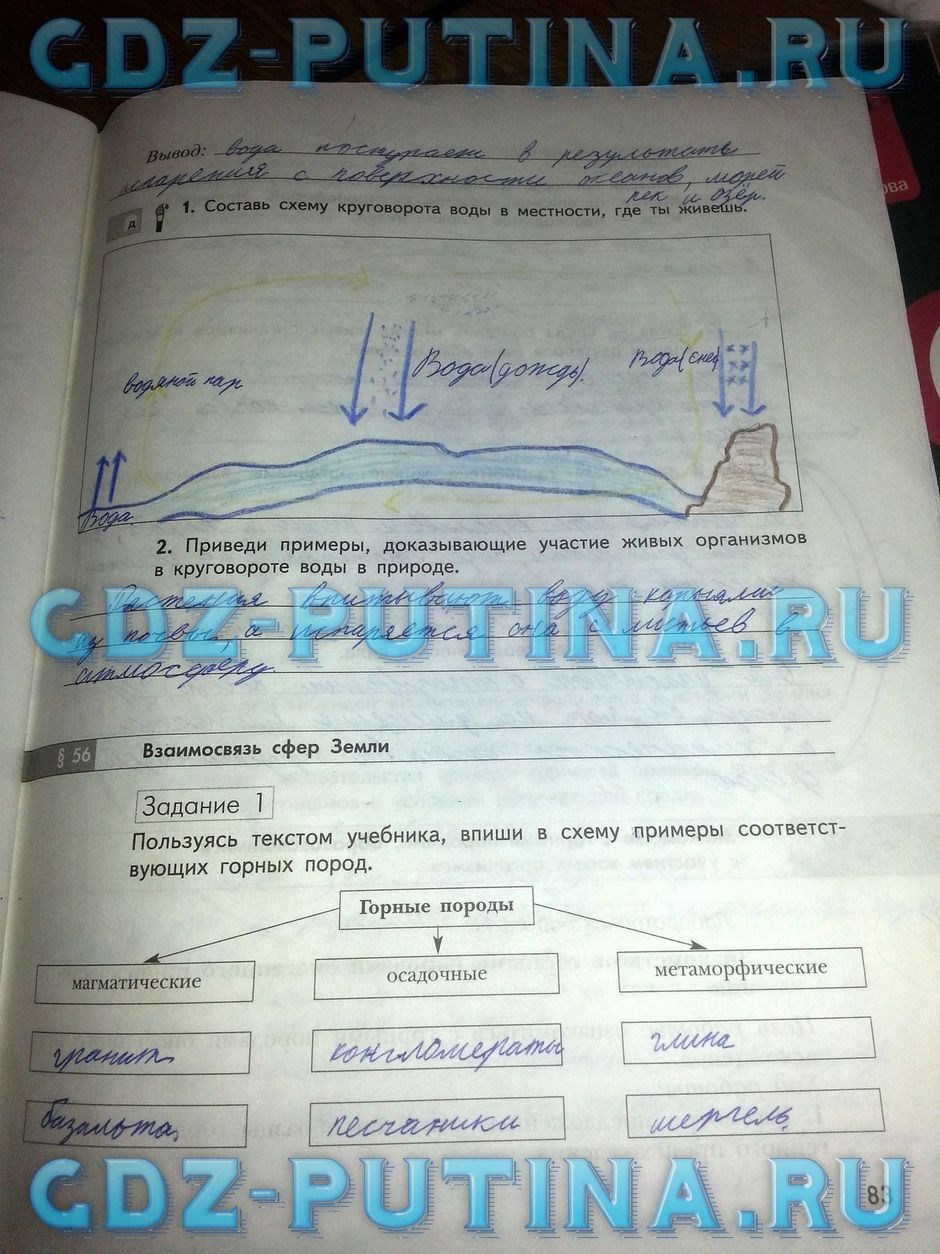 GDZ-PUTINA.RU
Вывод: вода поступает в результате
испарения с поверхности океанов, морей
рек и озёр.
ова
д
1. Составь схему круговорота воды в местности, где ты живёшь.
водяной пар
Вода(дождь).
Вода(снег)
Вода
2. Приведи примеры, доказывающие участие живых организмов
в круговороте воды в природе.
GDZ-PUTINA.RU
Растения впитывают воду корнями
из почвы, а испаряется она с листьев в
атмосферу
§ 56
Взаимосвязь сфер Земли
Задание 1
Пользуясь текстом учебника, впиши в схему примеры соответст-
вующих горных пород.
Горные породы
магматические
осадочные
метаморфические
гранит
конгломераты
глина
базальта,
песчаники
мергель
83
GDZ-PUTINA.RU